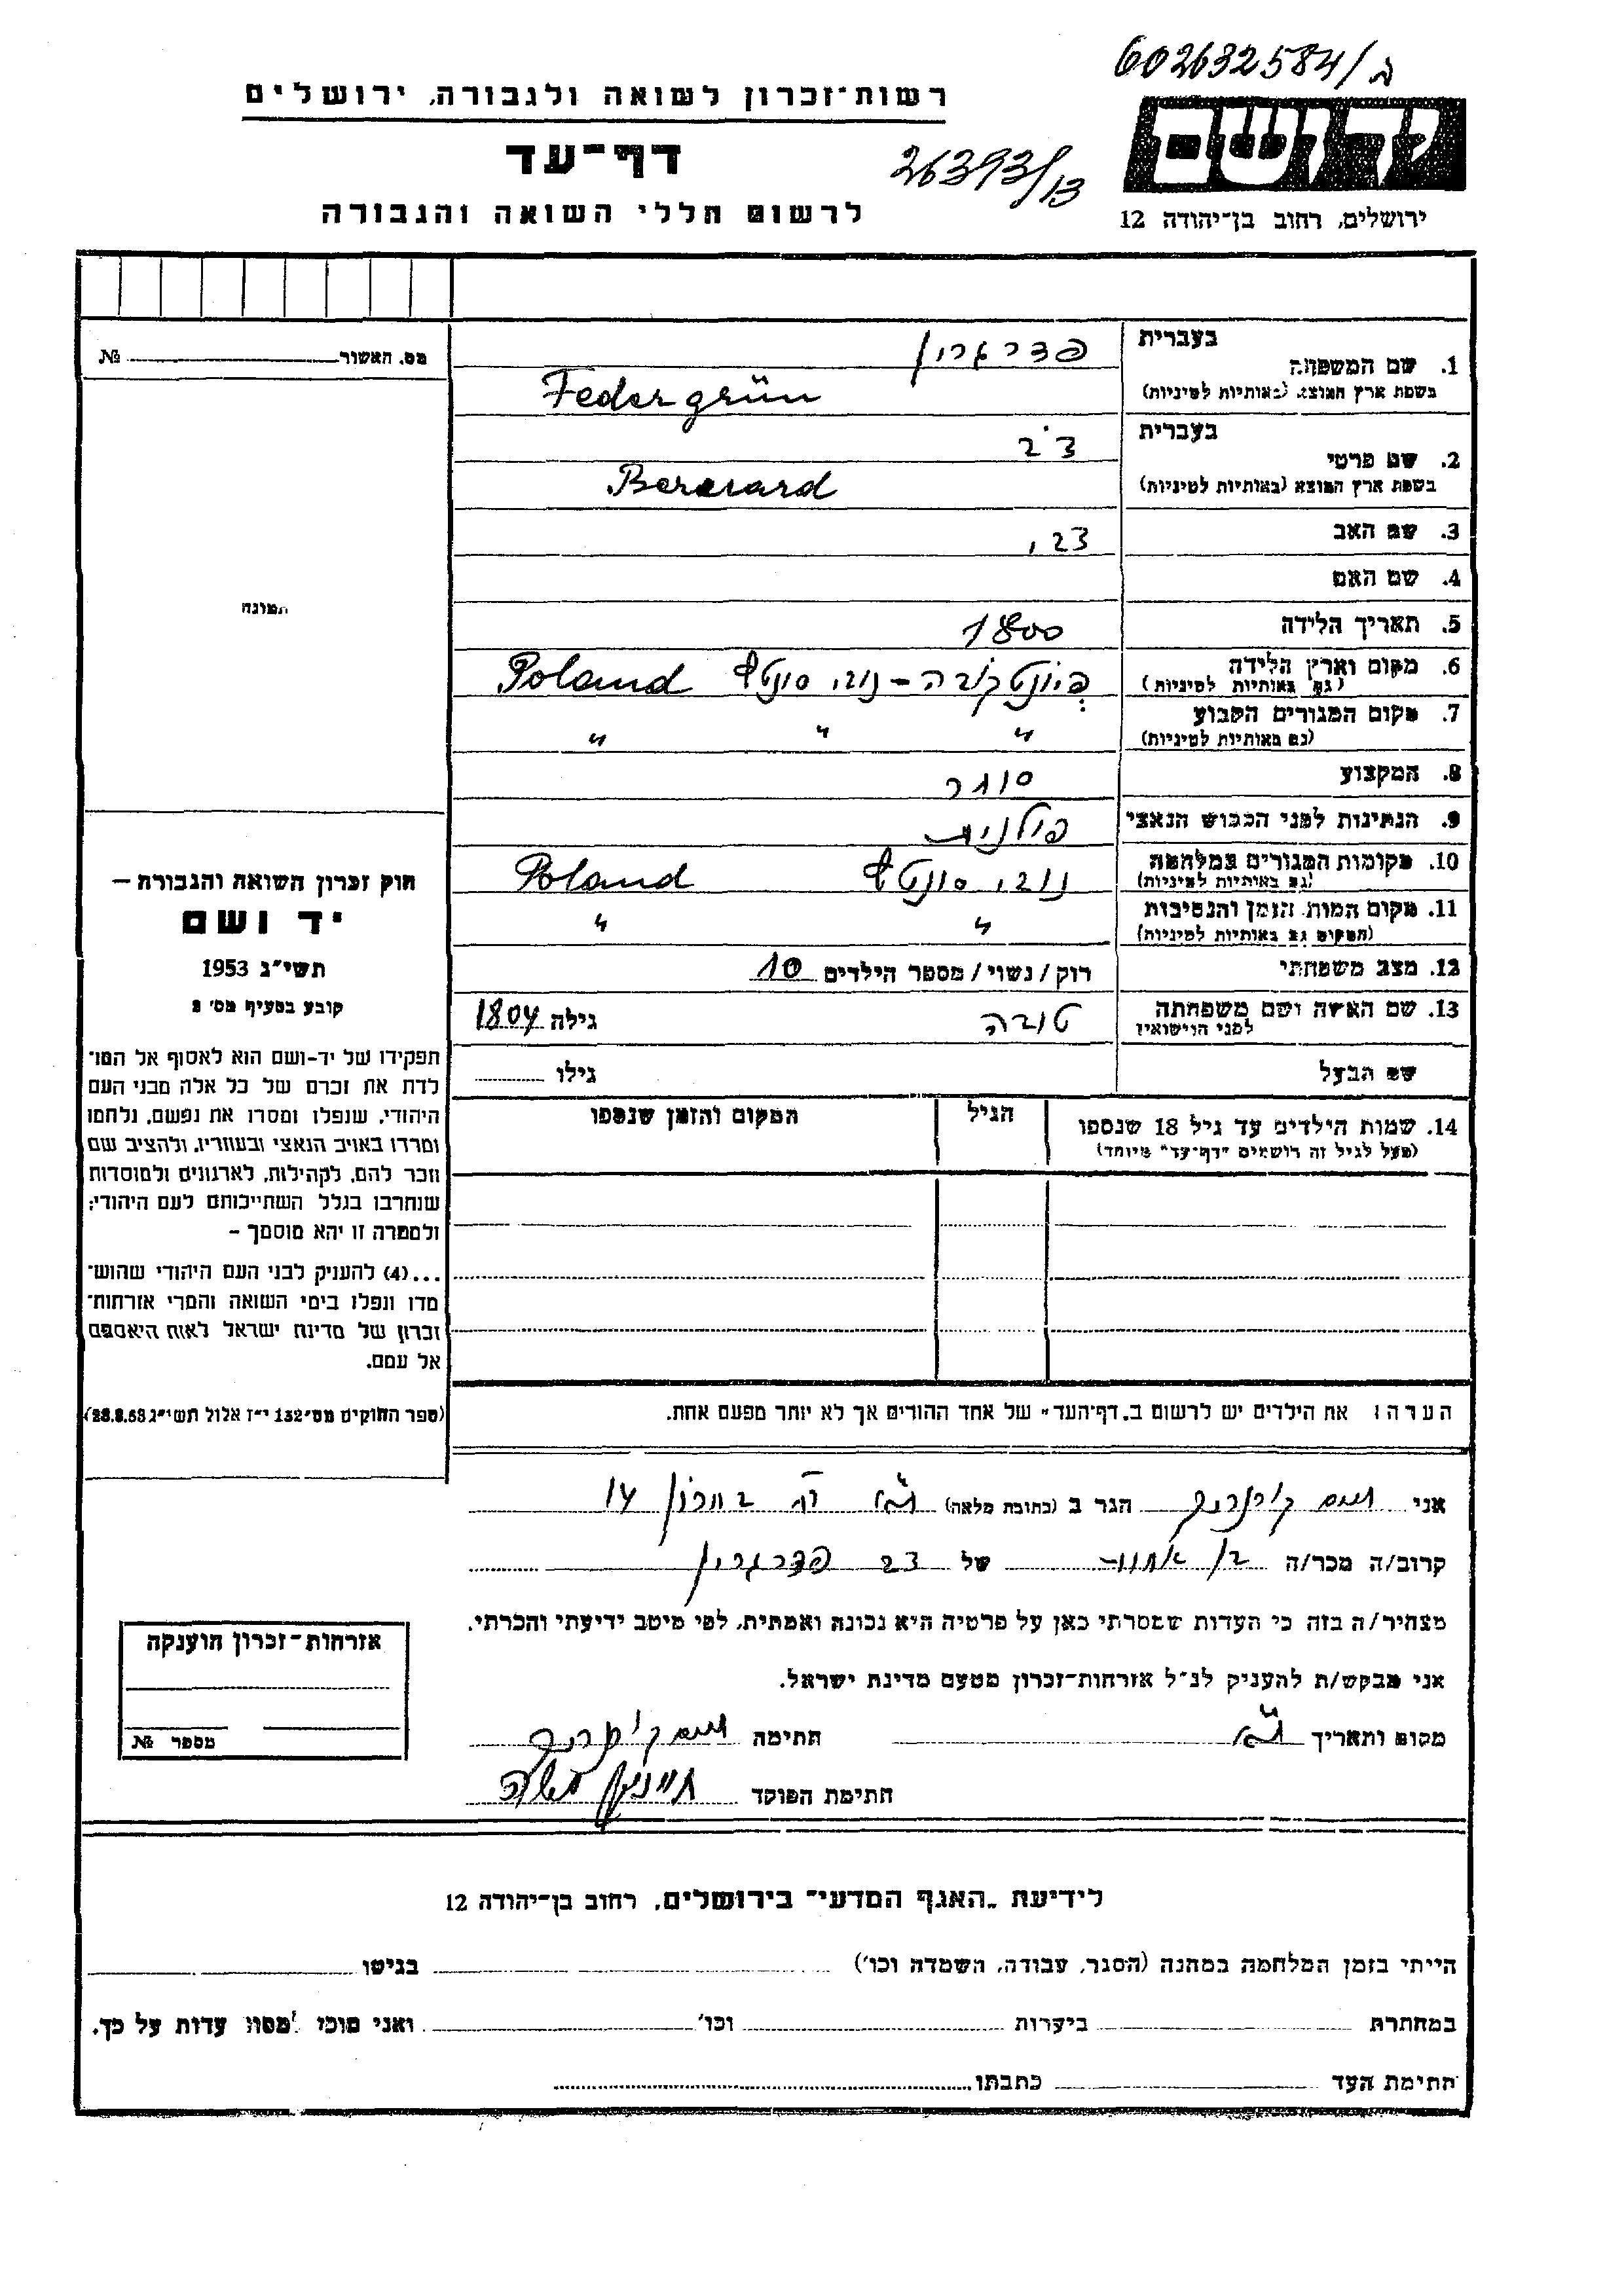 602632584/ב
רשות־זכרון לשואה ולגבורה, ירושלים
ידושם
דף־עד
26393/13
לרשום חללי השואה והגבורה
ירושלים, רחוב בן־יהודה 12
מס. האשור № 
בעברית
1. שם המשפחה פדרגרין
בשפת ארץ המוצא (באותיות לטיניות) Federgrün
בעברית
2. שם פרטי
בשפת ארץ המוצא (באותיות לטיניות) Bernard
3. שם האב
4. שם האם
5. תאריך הלידה 1800
6. מקום וארץ הלידה
(גם באותיות לטיניות) Poland
7. מקום המגורים הקבוע " " "
(גם באותיות לטיניות)
8. המקצוע סוחר
9. הנתינות לפני הכבוש הנאצי פולנית
10. מקומות המגורים במלחמה
(גם באותיות לטיניות) Poland
11. מקום המות, הזמן והנסיבות " "
(המקום גם באותיות לטיניות)
12. מצב משפחתי רוק/נשוי/מספר הילדים 10
13. שם האשה ושם משפחתה טובה גילה 1804
לפני הנישואין
שם הבעל גילו
14. שמות הילדים עד גיל 18 שנספו הגיל המקום והזמן שנספו
(מעל לגיל זה רושמים "דף־עד" מיוחד)
הערה: את הילדים יש לרשום ב„דף־העד" של אחד ההורים אך לא יותר מפעם אחת.
תמונה
חוק זכרון השואה והגבורה —
יד ושם
תשי"ג 1953
קובע בסעיף מס' 2
תפקידו של יד־ושם הוא לאסוף אל המו־
לדת את זכרם של כל אלה מבני העם
היהודי, שנפלו ומסרו את נפשם, נלחמו
ומרדו באויב הנאצי ובעוזריו, ולהציב שם
וזכר להם, לקהילות, לארגונים ולמוסדות
שנחרבו בגלל השתייכותם לעם היהודי;
ולמטרה זו יהא מוסמך –
...(4) להעניק לבני העם היהודי שהוש־
מדו ונפלו בימי השואה והמרי אזרחות־
זכרון של מדינת ישראל לאות היאספם
אל עמם.
(ספר החוקים מס' 132 י"ז אלול תשי"ג 28.8.53)
אני הגר ב (כתובת מלאה) 14
קרוב/ה מכר/ה בן אחות של פדרגרין
מצהיר/ה בזה כי העדות שמסרתי כאן על פרטיה היא נכונה ואמתית, לפי מיטב ידיעתי והכרתי.
אני מבקש/ת להעניק לנ"ל אזרחות־זכרון מטעם מדינת ישראל.
מקום ותאריך ת"א חתימה
חתימת הפוקד
אזרחות־זכרון הוענקה
מספר №
לידיעת „האגף המדעי" בירושלים, רחוב בן־יהודה 12
הייתי בזמן המלחמה במחנה (הסגר, עבודה, השמדה וכו') בגיטו
במחתרת ביערות וכו' ואני מוכן למסור עדות על כך.
חתימת העד כתבתו